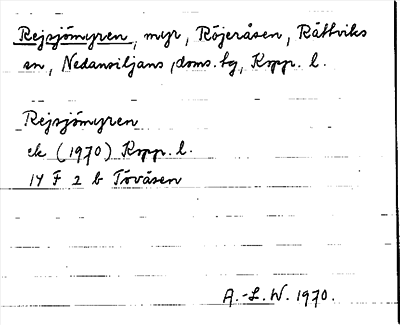 Rejsjömyren, myr, Röjeråsen, Rättviks
sn, Nedansiljans doms. tg, Kopp. l.
Rejsjömyren
ek (1970) Kopp. l.
14 F 2 b Tövåsen
A.-L. W. 1970.